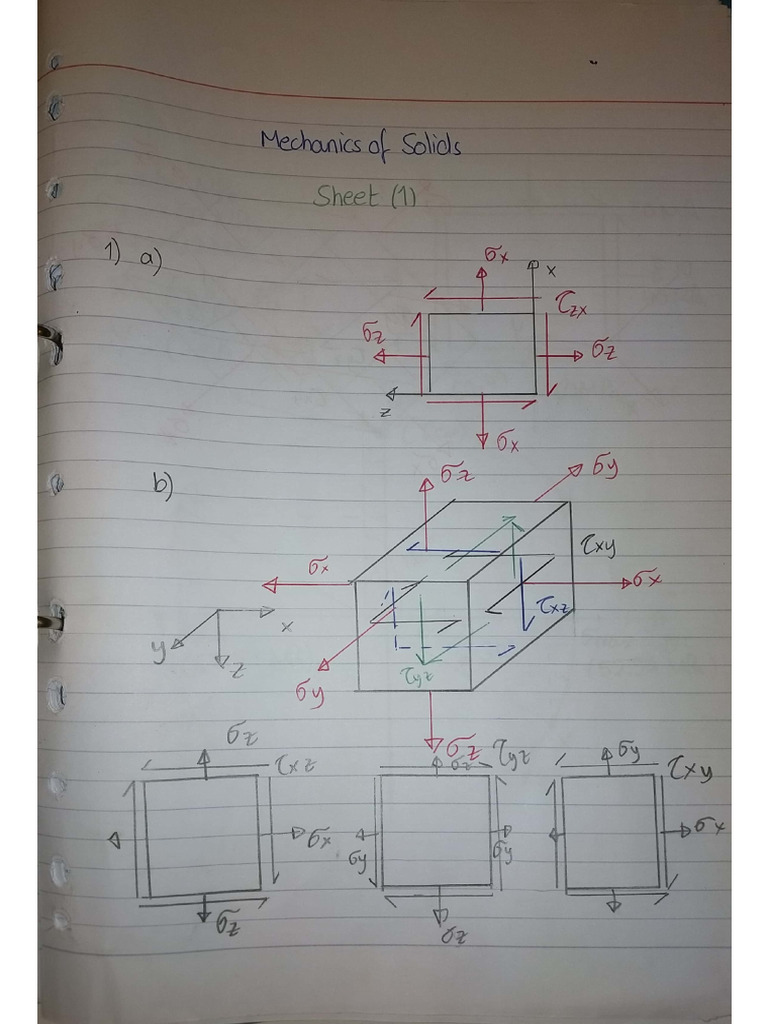 Mechanics of Solids
Sheet (1)
1) a)
σx
x
τzx
σz
σz
z
σx
b)
σz
σy
τxy
σx
σx
τxz
x
y
z
τyz
σy
σz
σz
τxz
σz
τyz
σy
τxy
σx
σy
σy
σx
σz
σz